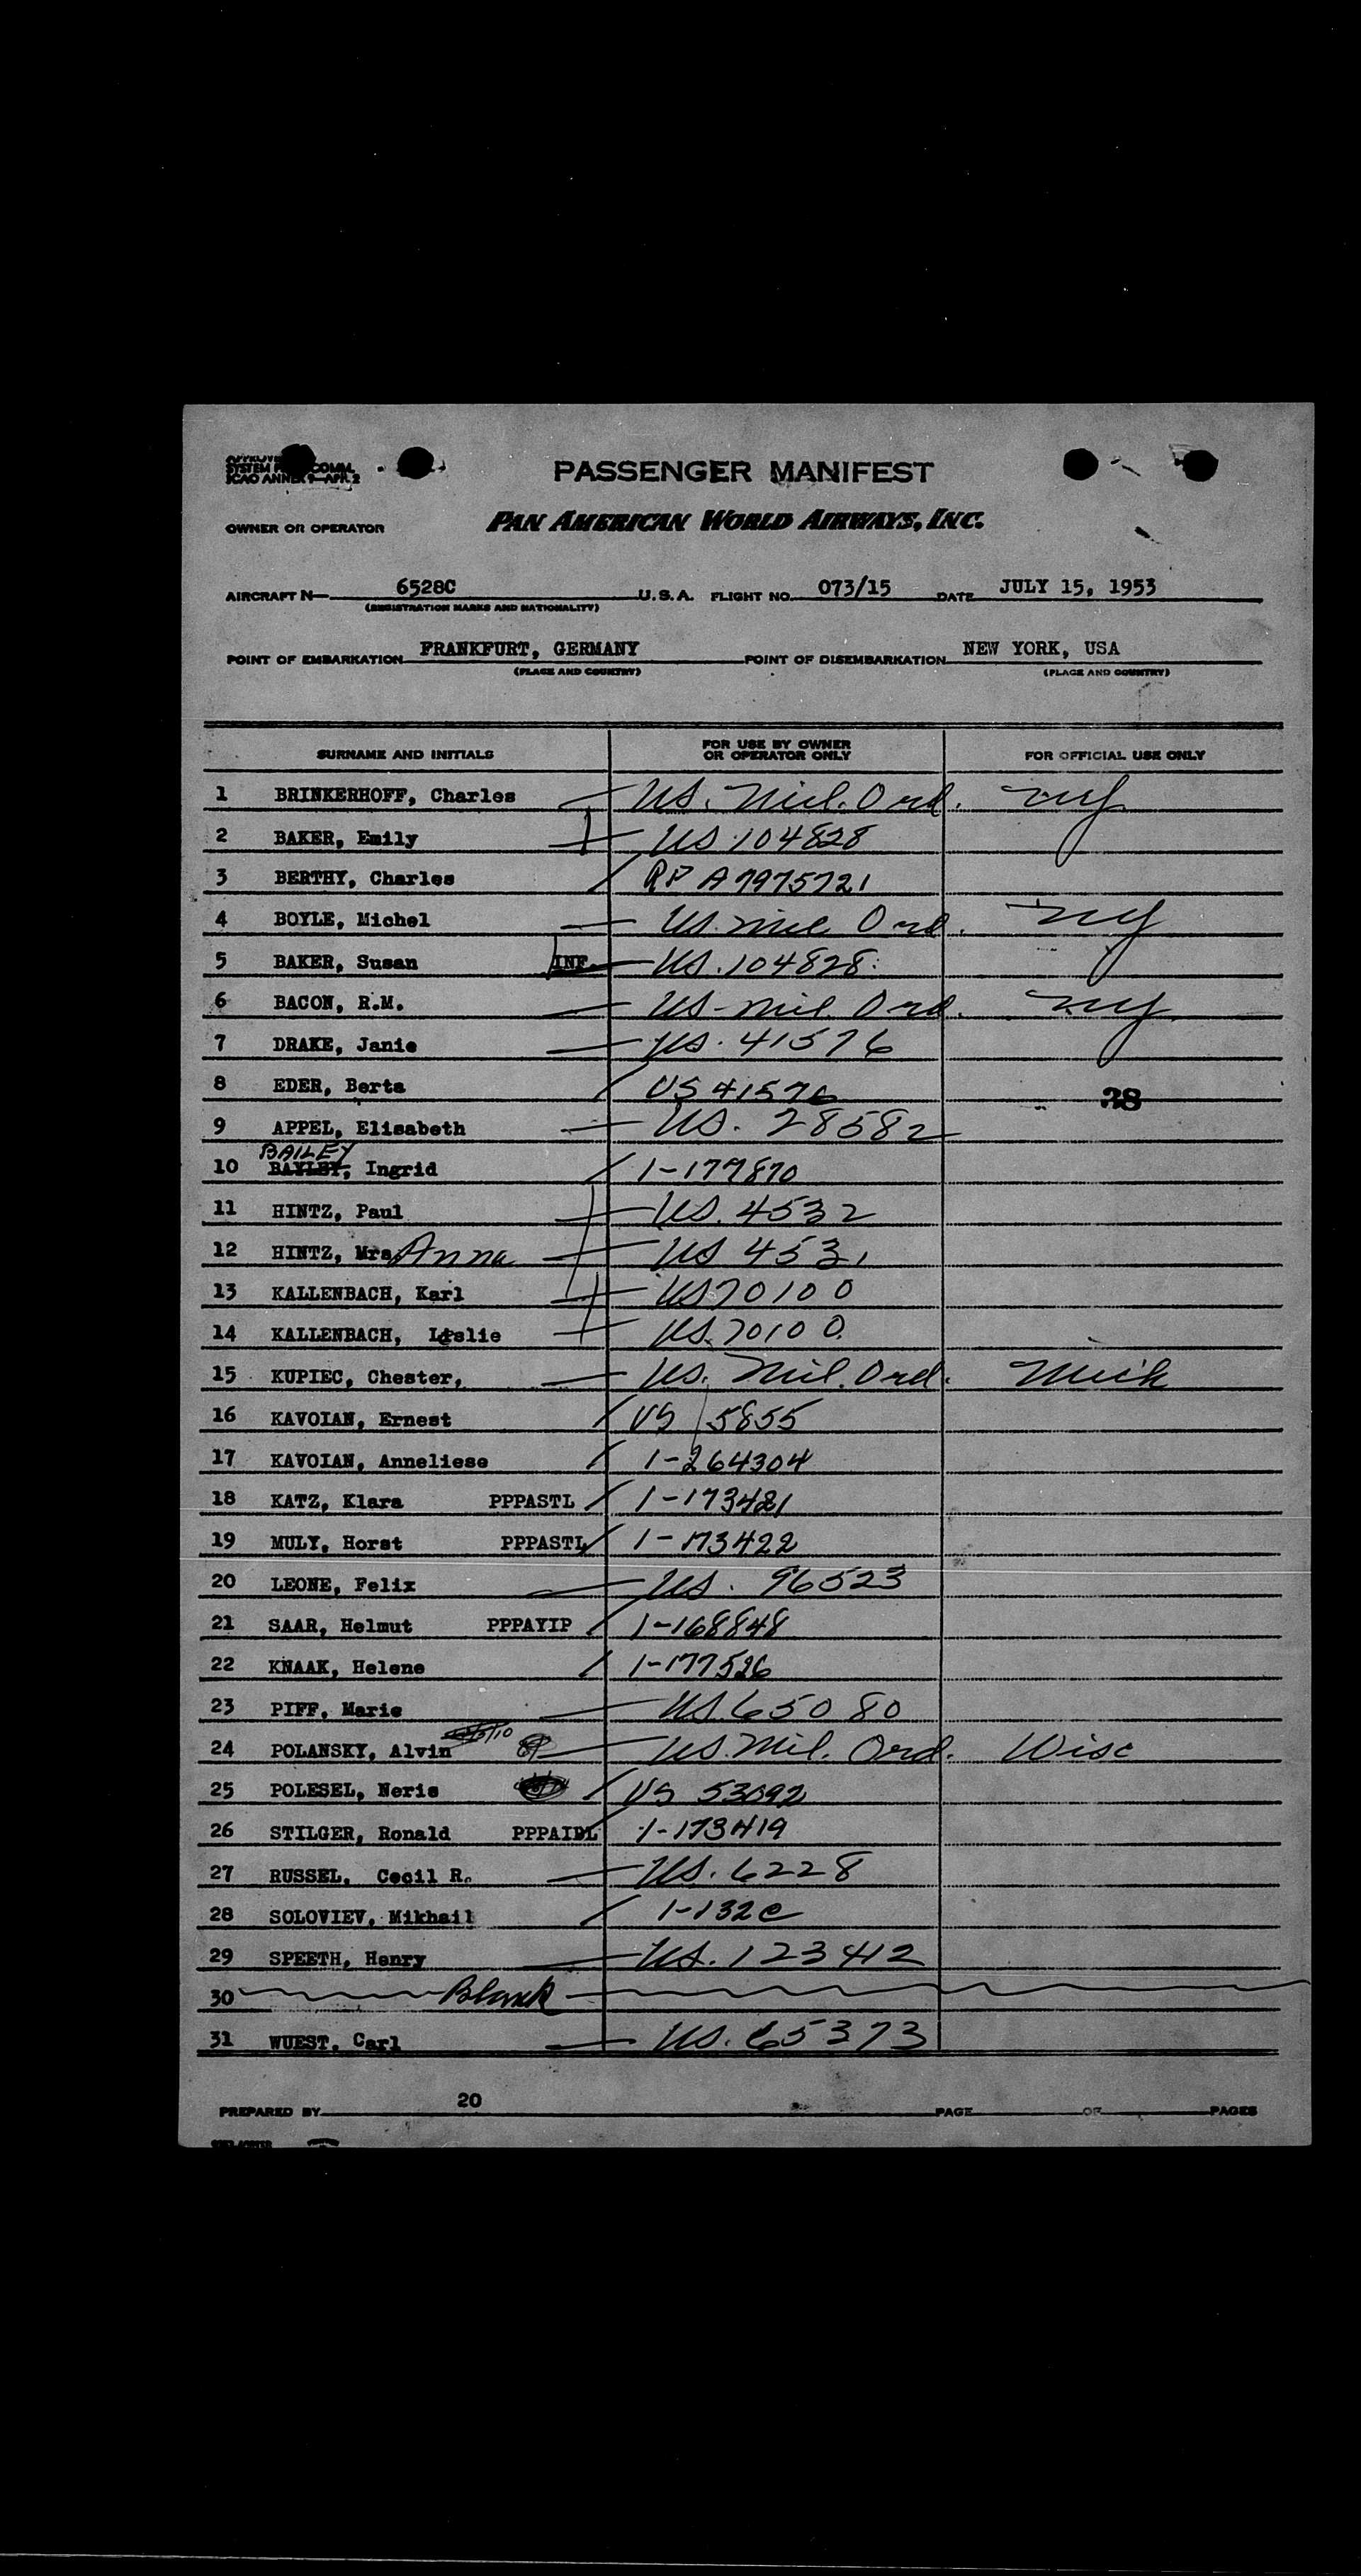 SYSTEM COMM.
ICAO ANNEX 9—APR. 2
PASSENGER MANIFEST
OWNER OR OPERATOR PAN AMERICAN WORLD AIRWAYS, INC.
AIRCRAFT N— 6528C U.S.A. FLIGHT NO. 073/15 DATE JULY 15, 1953
(REGISTRATION MARKS AND NATIONALITY)
POINT OF EMBARKATION FRANKFURT, GERMANY POINT OF DISEMBARKATION NEW YORK, USA
(PLACE AND COUNTRY) (PLACE AND COUNTRY)
SURNAME AND INITIALS FOR USE BY OWNER OR OPERATOR ONLY FOR OFFICIAL USE ONLY
1 BRINKERHOFF, Charles US. Mil. Ord. NY
2 BAKER, Emily US 104828
3 BERTHY, Charles RP A7975721
4 BOYLE, Michel US. Mil Ord. NY
5 BAKER, Susan INF. US. 104828
6 BACON, R.M. US. Mil. Ord. NY
7 DRAKE, Janie US. 41576
8 EDER, Berta US 41576 38
9 APPEL, Elisabeth US. 28582
BAILEY
10 BAYLEY, Ingrid 1-177870
11 HINTZ, Paul US. 4532
12 HINTZ, Mrs Anna US 4531
13 KALLENBACH, Karl US 70100
14 KALLENBACH, Leslie US. 70100
15 KUPIEC, Chester, US. Mil. Ord. Mich
16 KAVOIAN, Ernest US 5855
17 KAVOIAN, Anneliese 1-264304
18 KATZ, Klara PPPASTL 1-173421
19 MULY, Horst PPPASTL 1-173422
20 LEONE, Felix US. 96523
21 SAAR, Helmut PPPAYIP 1-168848
22 KNAAK, Helene 1-177526
23 PIFF, Marie US. 65080
24 POLANSKY, Alvin US. Mil. Ord. Wisc
25 POLESEL, Neris US 53092
26 STILGER, Ronald PPPAIDL 1-173419
27 RUSSEL, Cecil R. US. 6228
28 SOLOVIEV, Mikhail 1-132C
29 SPEETH, Henry US. 123412
30 Blank
31 WUEST, Carl US. 65373
PREPARED BY 20 PAGE OF PAGES